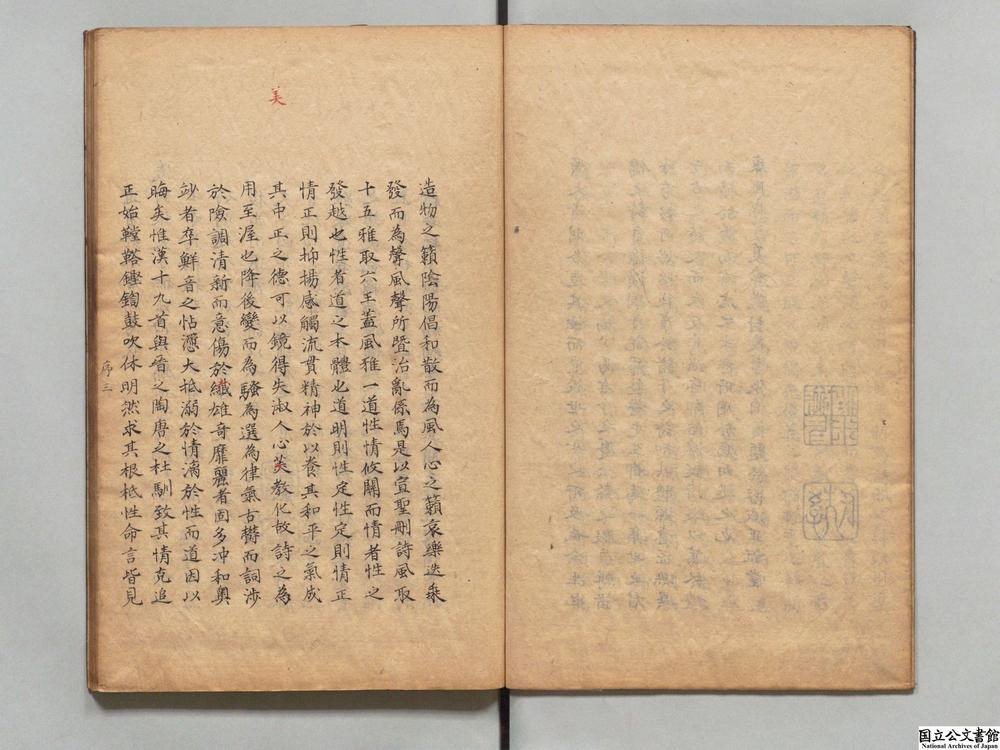 造物之籟陰陽倡和散而為風人心之籟哀樂迭乗
發而為聲風聲所曁治亂係焉是以宣聖刪詩風取
十五雅取六王蓋風雅一道性情攸關而情者性之
發越也性者道之本體也道明則性定性定則情正
情正則抑揚感觸流貫精神於以養其和平之氣成
其中正之德可以鏡得失淑人心美教化故詩之為
用至渥也降後變而為騷為選為律氣古欝而詞涉
於險調清新而意傷於纖雄奇靡麗者固多冲和奥
妙者卒鮮音之怗懘大柢溺於情漓於性而道因以
晦矣惟漢十九首與晉之陶唐之杜馴致其情克追
正始鞺鞳鏗鍧鼓吹休明然求其根柢性命言皆見
序三
美
国立公文書館
National Archives of Japan